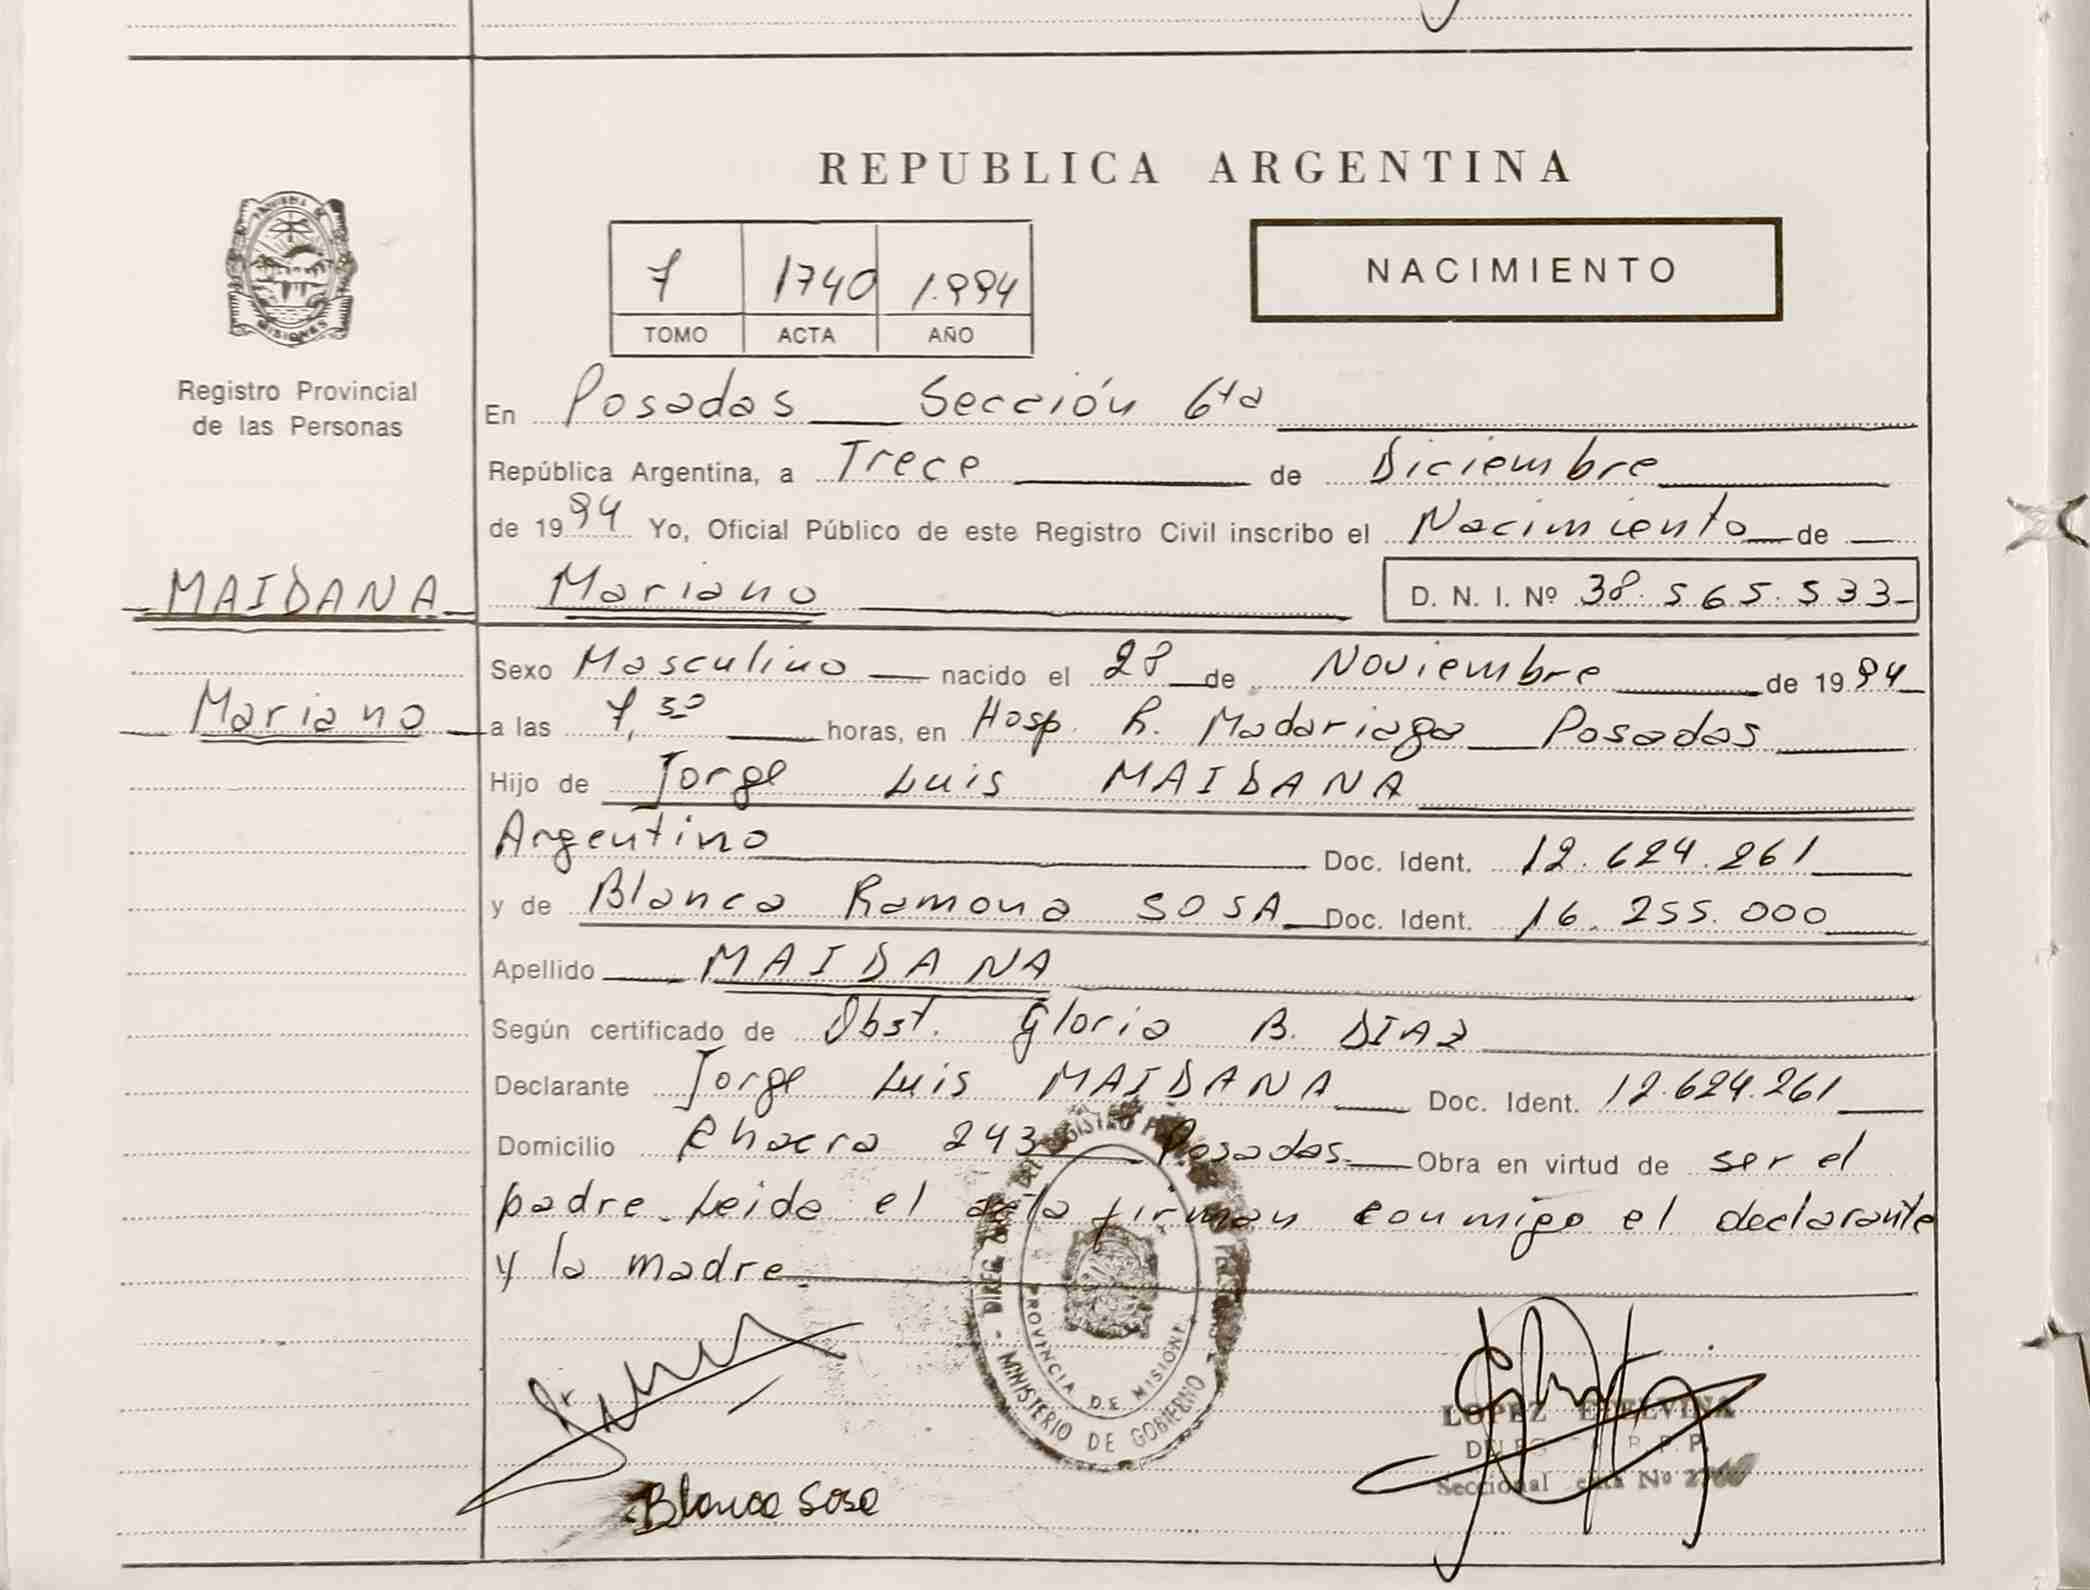 REPUBLICA ARGENTINA
MISIONES
Registro Provincial
de las Personas
7 1740 1.994
TOMO ACTA AÑO
NACIMIENTO
En Posadas Sección 6ta
República Argentina, a Trece de Diciembre
de 1994 Yo, Oficial Público de este Registro Civil inscribo el Nacimiento de
MAIDANA Mariano D. N. I. Nº 38.565.533
Sexo Masculino nacido el 28 de Noviembre de 1994
Mariano a las 7,30 horas, en Hosp. R. Madariaga Posadas
Hijo de Jorge Luis MAIDANA
Argentino Doc. Ident. 12.624.261
y de Blanca Ramona SOSA Doc. Ident. 16.255.000
Apellido MAIDANA
Según certificado de Obst. Gloria B. DIAZ
Declarante Jorge Luis MAIDANA Doc. Ident. 12.624.261
Domicilio Chacra 243 Posadas. Obra en virtud de ser el
padre. Leida el acta firman conmigo el declarante
y la madre.
PROVINCIA DE MISIONES
MINISTERIO DE GOBIERNO
LOPEZ EDELVINA
Seccional
Blanca Sosa